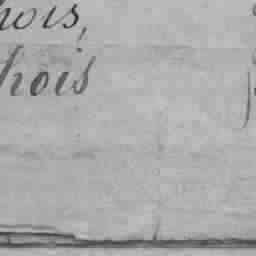 hois,
hois